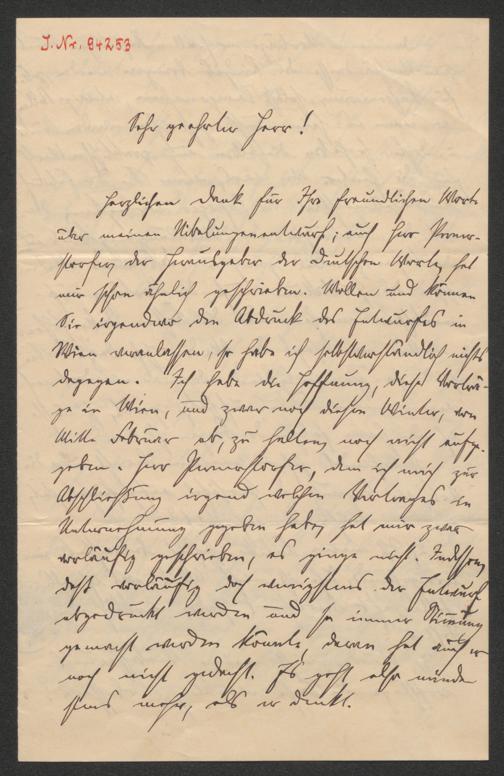 J. Nr. 84253
Sehr geehrter Herr!
Herzlichen Dank für Ihre freundlichen Worte
über meinen Nibelungenentwurf; auch Herr Perner-
storfer, der Herausgeber der Deutschen Worte, hat
mir schon ähnlich geschrieben. Wollen und können
Sie irgendwo den Abdruck des Entwurfes in
Wien veranlassen, so habe ich selbstverständlich nichts
dagegen. Ich habe die Hoffnung, diese Vorträ-
ge in Wien, und zwar noch diesen Winter, von
Mitte Februar ab, zu halten, noch nicht aufge-
geben. Herr Pernerstorfer, dem ich mich zur
Abschließung irgend welchen Vertrages in
Unternehmung gegeben habe, hat mir zwar
vorläufig geschrieben, es ginge nicht. Indessen,
daß vorläufig doch wenigstens der Entwurf
abgedruckt werden und so immer Stimmung
gemacht werden könnte, daran hat auch er
noch nicht gedacht. Es geht also minde-
stens mehr, als er denkt.